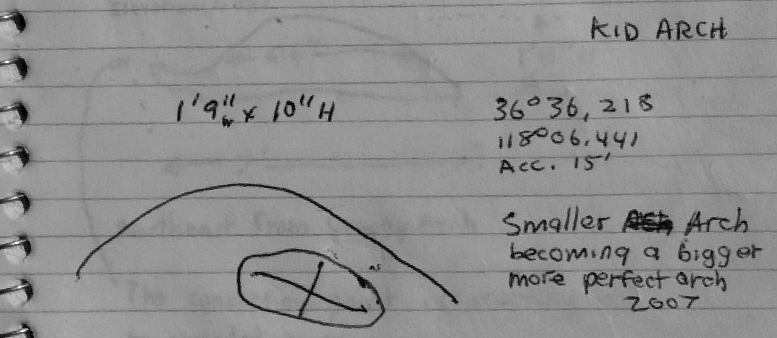 KID ARCH
1'9"w x 10"H
36°36,218
118°06.441
Acc. 15'
Smaller Arch
becoming a bigger
more perfect arch
2007